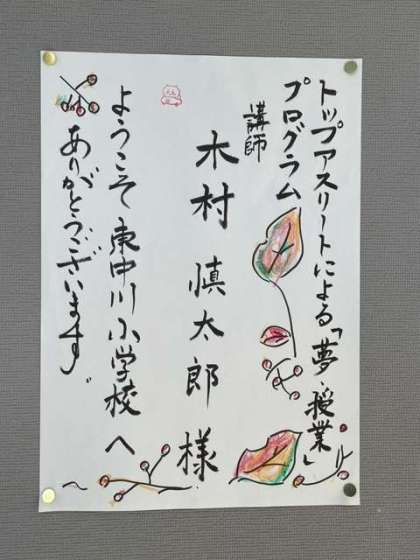 トップアスリートによる「夢・授業」
プログラム
講師
木村 慎太郎 様
ようこそ 東中川小学校へ
ありがとうございます